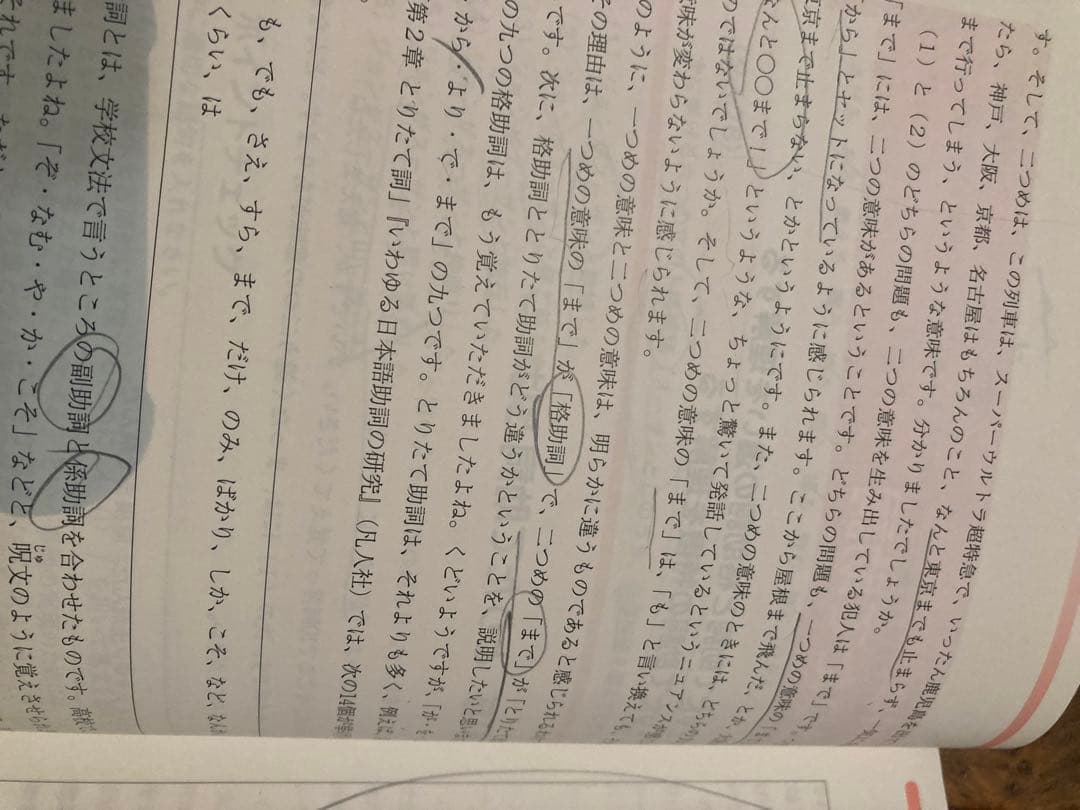 す。そして、二つめは、この列車は、スーパーウルトラ超特急で、いったん鹿児島を
たら、神戸、大阪、京都、名古屋はもちろんのこと、なんと東京までも止まらず、
まで行ってしまう、というような意味です。分かりましたでしょうか。
（1）と（2）のどちらの問題も、二つの意味を生み出している犯人は「まで」です。
「まで」には、二つの意味があるということです。どちらの問題も、一つめの意味の
から」とセットになっているように感じられます。ここから屋根まで飛んだ、とか
東京まで止まらない、とかというようにです。また、二つめの意味のときには、どちらの
なんと〇〇まで！」というような、ちょっと驚いて発話しているというニュアンスが
のではないでしょうか。そして、二つめの意味の「まで」は、「も」と言い換えても、
意味が変わらないように感じられます。
のように、一つめの意味と二つめの意味は、明らかに違うものであると感じられる
その理由は、一つめの意味の「まで」が「格助詞」で、二つめの「まで」が「とりたて
です。次に、格助詞ととりたて助詞がどう違うかということを、説明したいと思い
の九つの格助詞は、もう覚えていただきましたよね。くどいようですが、「が・を
から・より・で・まで」の九つです。とりたて助詞は、それよりも多く、例えば
第2章 とりたて詞」『いわゆる日本語助詞の研究』（凡人社）では、次の14個が
。
も、でも、さえ、すら、まで、だけ、のみ、ばかり、しか、こそ、など、なんか
くらい、は
詞とは、学校文法で言うところの副助詞と係助詞を合わせたものです。高校
ましたよね。「ぞ・なむ・や・か・こそ」などと、呪文のように覚えさせられ
じゅ
それです